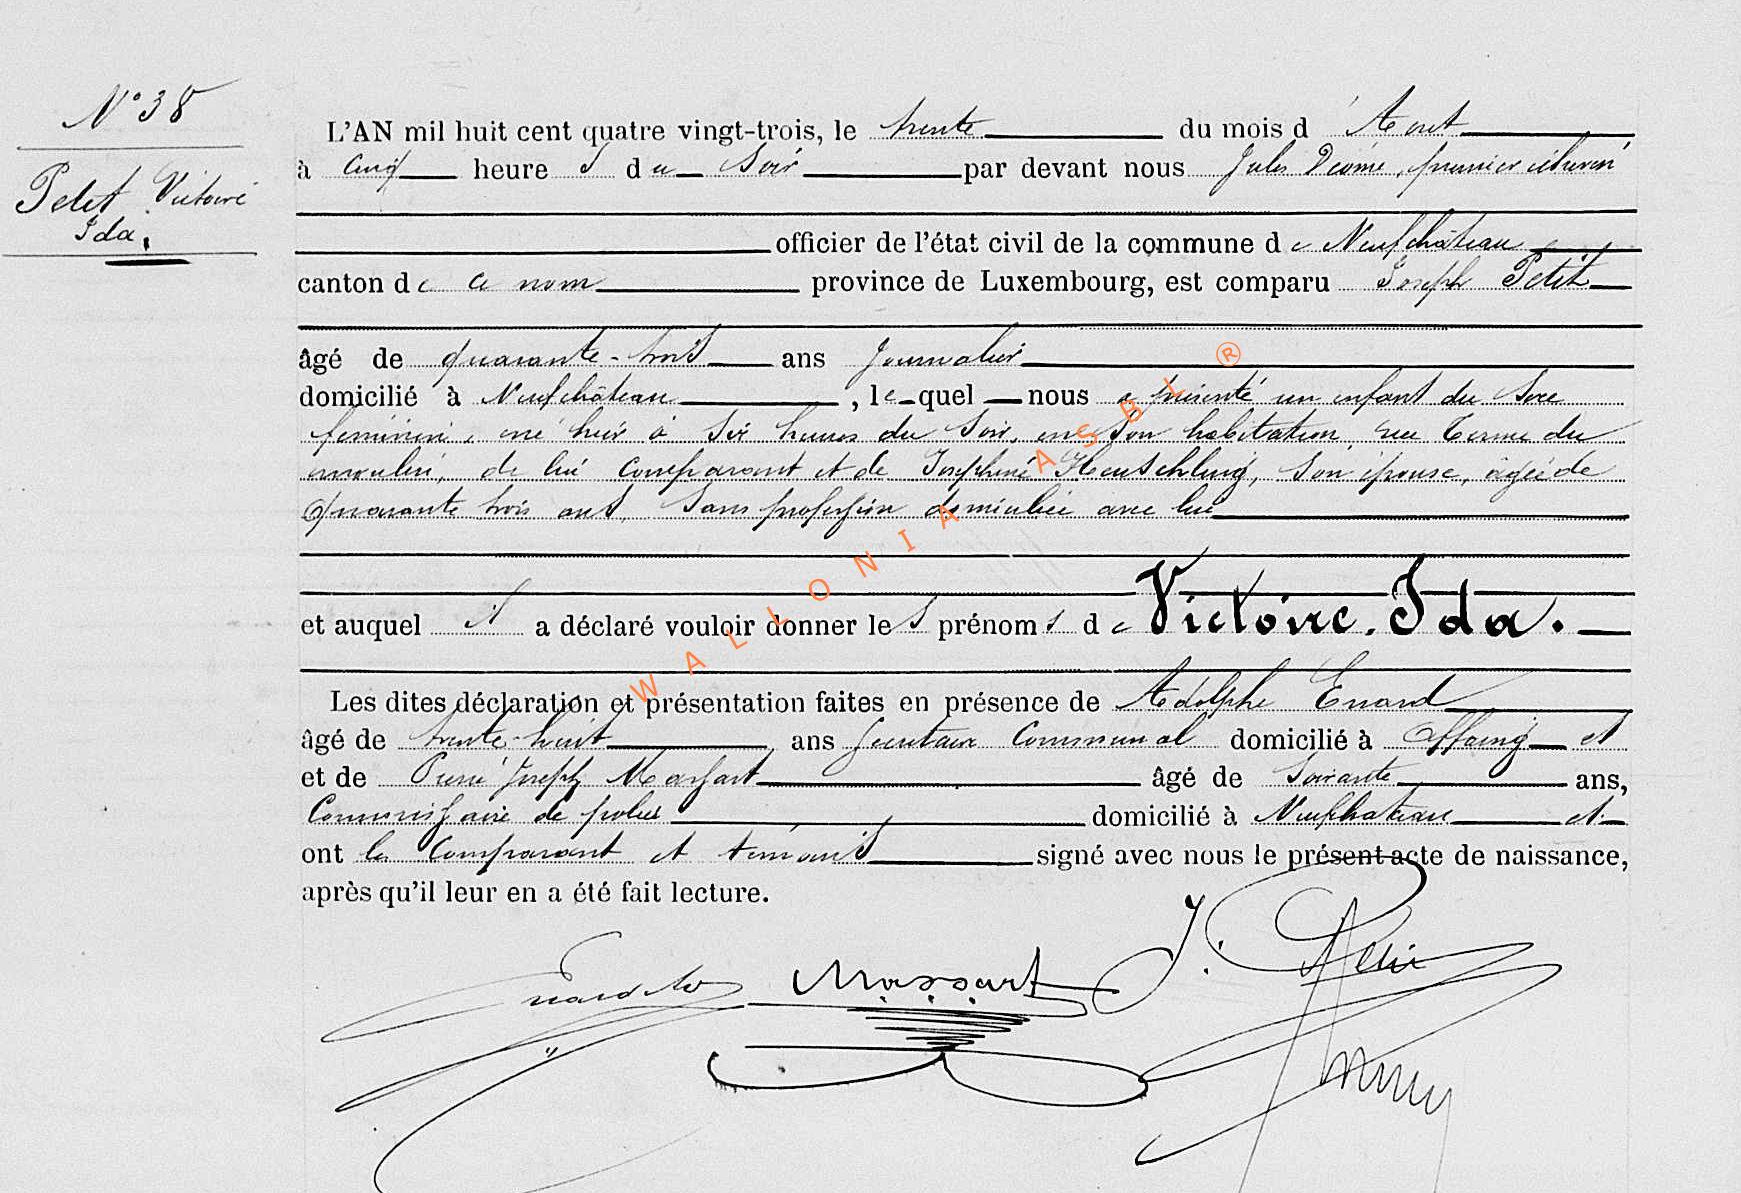 N° 38
Petit Victoire
Ida.
L'AN mil huit cent quatre vingt-trois, le trente du mois d'Aout
à cinq heures du soir par devant nous Jules premier échevin
officier de l'état civil de la commune de Neufchâteau
canton de ce nom province de Luxembourg, est comparu Joseph Petit
âgé de quarante-trois ans journalier
domicilié à Neufchâteau, lequel nous a présenté un enfant du sexe
féminin, né hier à six heures du soir, en son habitation, rue Terme du
moulin, de lui comparant et de Joséphine Heuschling, son épouse, agée de
quarante trois ans, sans profession domiciliée avec lui
et auquel il a déclaré vouloir donner les prénoms de Victoire. Ida.
Les dites déclaration et présentation faites en présence de Adolphe Evrard
âgé de trente-huit ans Secrétaire Communal domicilié à Offaing et
et de Pierre Joseph Massart âgé de soixante ans,
Commissaire de police domicilié à Neufchateau et
ont le Comparant et témoins signé avec nous le présent acte de naissance,
après qu'il leur en a été fait lecture.
Massart J. Petit
WALLONIA ASBL ®